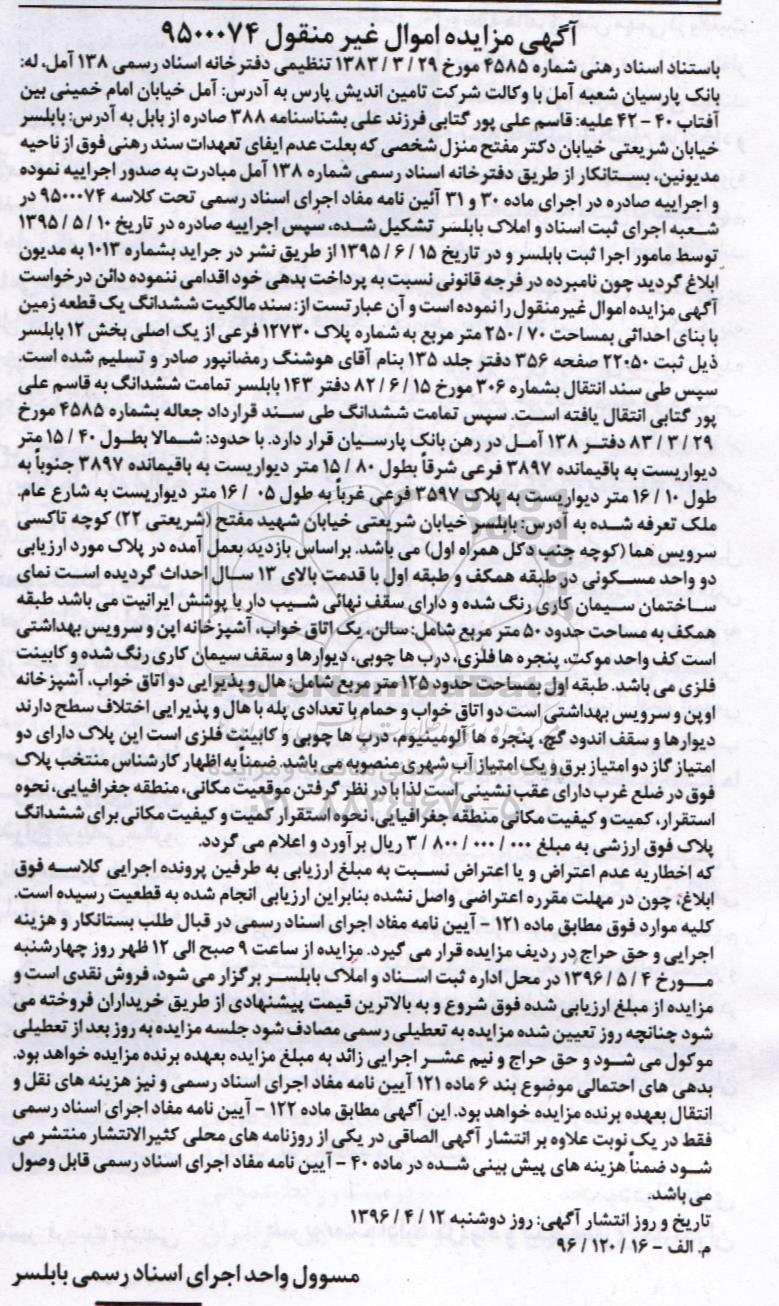 آگهی مزایده اموال غیر منقول ۹۵۰۰۰۷۴
باستناد اسناد رهنی شماره ۴۵۸۵ مورخ ۲۹ / ۳ / ۱۳۸۳ تنظیمی دفترخانه اسناد رسمی ۱۳۸ آمل، له:
بانک پارسیان شعبه آمل با وکالت شرکت تامین اندیش پارس به آدرس: آمل خیابان امام خمینی بین
آفتاب ۴۰ - ۴۲ علیه: قاسم علی پور گتابی فرزند علی بشناسنامه ۳۸۸ صادره از بابل به آدرس: بابلسر
خیابان شریعتی خیابان دکتر مفتح منزل شخصی که بعلت عدم ایفای تعهدات سند رهنی فوق از ناحیه
مدیونین، بستانکار از طریق دفترخانه اسناد رسمی شماره ۱۳۸ آمل مبادرت به صدور اجراییه نموده
و اجراییه صادره در اجرای ماده ۳۰ و ۳۱ آئین نامه مفاد اجرای اسناد رسمی تحت کلاسه ۹۵۰۰۰۷۴ در
شعبه اجرای ثبت اسناد و املاک بابلسر تشکیل شده، سپس اجراییه صادره در تاریخ ۱۰ / ۵ / ۱۳۹۵
توسط مامور اجرا ثبت بابلسر و در تاریخ ۱۵ / ۶ / ۱۳۹۵ از طریق نشر در جراید بشماره ۱۰۱۳ به مدیون
ابلاغ گردید چون نامبرده در فرجه قانونی نسبت به پرداخت بدهی خود اقدامی ننموده دائن درخواست
آگهی مزایده اموال غیرمنقول را نموده است و آن عبارتست از: سند مالکیت ششدانگ یک قطعه زمین
با بنای احداثی بمساحت ۷۰ / ۲۵۰ متر مربع به شماره پلاک ۱۲۷۳۰ فرعی از یک اصلی بخش ۱۲ بابلسر
ذیل ثبت ۲۲۰۵۰ صفحه ۳۵۶ دفتر جلد ۱۳۵ بنام آقای هوشنگ رمضانپور صادر و تسلیم شده است.
سپس طی سند انتقال بشماره ۳۰۶ مورخ ۱۵ / ۶ / ۸۲ دفتر ۱۴۳ بابلسر تمامت ششدانگ به قاسم علی
پور گتابی انتقال یافته است. سپس تمامت ششدانگ طی سند قرارداد جعاله بشماره ۴۵۸۵ مورخ
۲۹ / ۳ / ۸۳ دفتر ۱۳۸ آمل در رهن بانک پارسیان قرار دارد. با حدود: شمالا بطول ۴۰ / ۱۵ متر
دیواریست به باقیمانده ۳۸۹۷ فرعی شرقاً بطول ۸۰ / ۱۵ متر دیواریست به باقیمانده ۳۸۹۷ جنوباً به
طول ۱۰ / ۱۶ متر دیواریست به پلاک ۳۵۹۷ فرعی غرباً به طول ۰۵ / ۱۶ متر دیواریست به شارع عام.
ملک تعرفه شده به آدرس: بابلسر خیابان شریعتی خیابان شهید مفتح (شریعتی ۲۲) کوچه تاکسی
سرویس هما (کوچه جنب دکل همراه اول) می باشد. براساس بازدید بعمل آمده در پلاک مورد ارزیابی
دو واحد مسکونی در طبقه همکف و طبقه اول با قدمت بالای ۱۳ سال احداث گردیده است نمای
ساختمان سیمان کاری رنگ شده و دارای سقف نهائی شیب دار با پوشش ایرانیت می باشد طبقه
همکف به مساحت حدود ۵۰ متر مربع شامل: سالن، یک اتاق خواب، آشپزخانه اپن و سرویس بهداشتی
است کف واحد موکت، پنجره ها فلزی، درب ها چوبی، دیوارها و سقف سیمان کاری رنگ شده و کابینت
فلزی می باشد. طبقه اول بمساحت حدود ۱۲۵ متر مربع شامل: هال و پذیرایی دو اتاق خواب، آشپزخانه
اوپن و سرویس بهداشتی است دو اتاق خواب و حمام با تعدادی پله با هال و پذیرایی اختلاف سطح دارند
دیوارها و سقف اندود گچ، پنجره ها آلومینیوم، درب ها چوبی و کابینت فلزی است این پلاک دارای دو
امتیاز گاز دو امتیاز برق و یک امتیاز آب شهری منصوبه می باشد. ضمناً به اظهار کارشناس منتخب پلاک
فوق در ضلع غرب دارای عقب نشینی است لذا با در نظر گرفتن موقعیت مکانی، منطقه جغرافیایی، نحوه
استقرار، کمیت و کیفیت مکانی منطقه جغرافیایی، نحوه استقرار کمیت و کیفیت مکانی برای ششدانگ
پلاک فوق ارزشی به مبلغ ۰۰۰ / ۰۰۰ / ۸۰۰ / ۳ ریال برآورد و اعلام می گردد.
که اخطاریه عدم اعتراض و یا اعتراض نسبت به مبلغ ارزیابی به طرفین پرونده اجرایی کلاسه فوق
ابلاغ، چون در مهلت مقرره اعتراضی واصل نشده بنابراین ارزیابی انجام شده به قطعیت رسیده است.
کلیه موارد فوق مطابق ماده ۱۲۱ - آیین نامه مفاد اجرای اسناد رسمی در قبال طلب بستانکار و هزینه
اجرایی و حق حراج در ردیف مزایده قرار می گیرد. مزایده از ساعت ۹ صبح الی ۱۲ ظهر روز چهارشنبه
مورخ ۴ / ۵ / ۱۳۹۶ در محل اداره ثبت اسناد و املاک بابلسر برگزار می شود، فروش نقدی است و
مزایده از مبلغ ارزیابی شده فوق شروع و به بالاترین قیمت پیشنهادی از طریق خریداران فروخته می
شود چنانچه روز تعیین شده مزایده به تعطیلی رسمی مصادف شود جلسه مزایده به روز بعد از تعطیلی
موکول می شود و حق حراج و نیم عشر اجرایی زائد به مبلغ مزایده بعهده برنده مزایده خواهد بود.
بدهی های احتمالی موضوع بند ۶ ماده ۱۲۱ آیین نامه مفاد اجرای اسناد رسمی و نیز هزینه های نقل و
انتقال بعهده برنده مزایده خواهد بود. این آگهی مطابق ماده ۱۲۲ - آیین نامه مفاد اجرای اسناد رسمی
فقط در یک نوبت علاوه بر انتشار آگهی الصاقی در یکی از روزنامه های محلی کثیرالانتشار منتشر می
شود ضمناً هزینه های پیش بینی شده در ماده ۴۰ - آیین نامه مفاد اجرای اسناد رسمی قابل وصول
می باشد.
تاریخ و روز انتشار آگهی: روز دوشنبه ۱۲ / ۴ / ۱۳۹۶
م. الف - ۱۶ / ۱۲۰ / ۹۶
مسوول واحد اجرای اسناد رسمی بابلسر